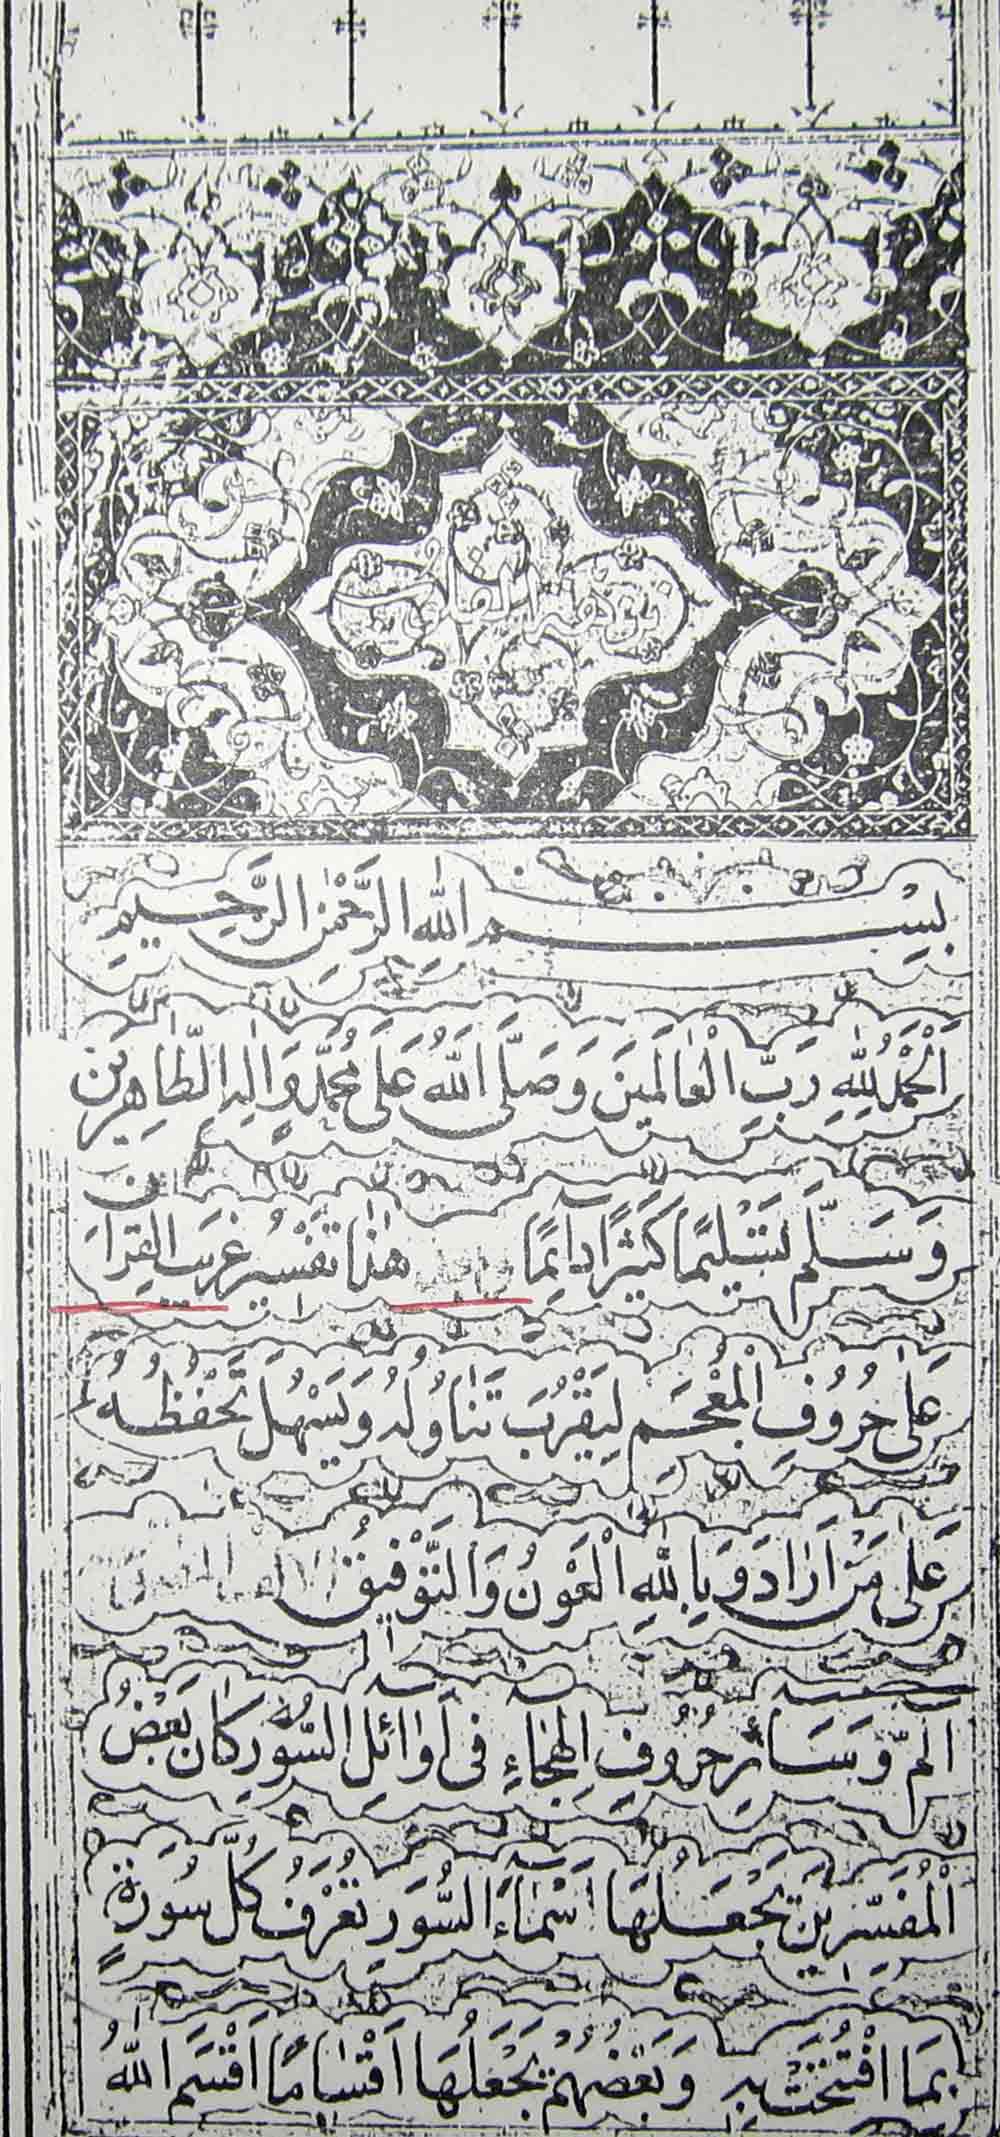 بِسْمِ اللهِ الرَّحْمٰنِ الرَّحِيمِ
اَلْحَمْدُ لِلّٰهِ رَبِّ الْعَالَمِينَ وَصَلَّى اللّٰهُ عَلَى مُحَمَّدٍ وَاٰلِهِ الطَّاهِرِينَ
وَسَلَّمَ تَسْلِيمًا كَثِيرًا دَائِمًا هٰذَا تَفْسِيرُ غَرِيبِ الْقُرْاٰنِ
عَلٰى حُرُوفِ الْمُعْجَمِ لِيَقْرُبَ تَنَاوُلُهُ وَيَسْهُلَ تَحَفُّظُهُ
عَلٰى مَنْ اَرَادَ وَبِاللّٰهِ الْعَوْنُ وَالتَّوْفِيقُ
الم وَسَائِرُ حُرُوفِ الْهِجَاءِ فِى اَوَائِلِ السُّوَرِ كَانَ بَعْضُ
الْمُفَسِّرِينَ يَجْعَلُهَا اَسْمَاءَ السُّوَرِ تُعْرَفُ كُلُّ سُورَةٍ
بِمَا افْتُتِحَتْ بِهِ وَبَعْضُهُمْ يَجْعَلُهَا اَقْسَامًا اَقْسَمَ اللّٰهُ